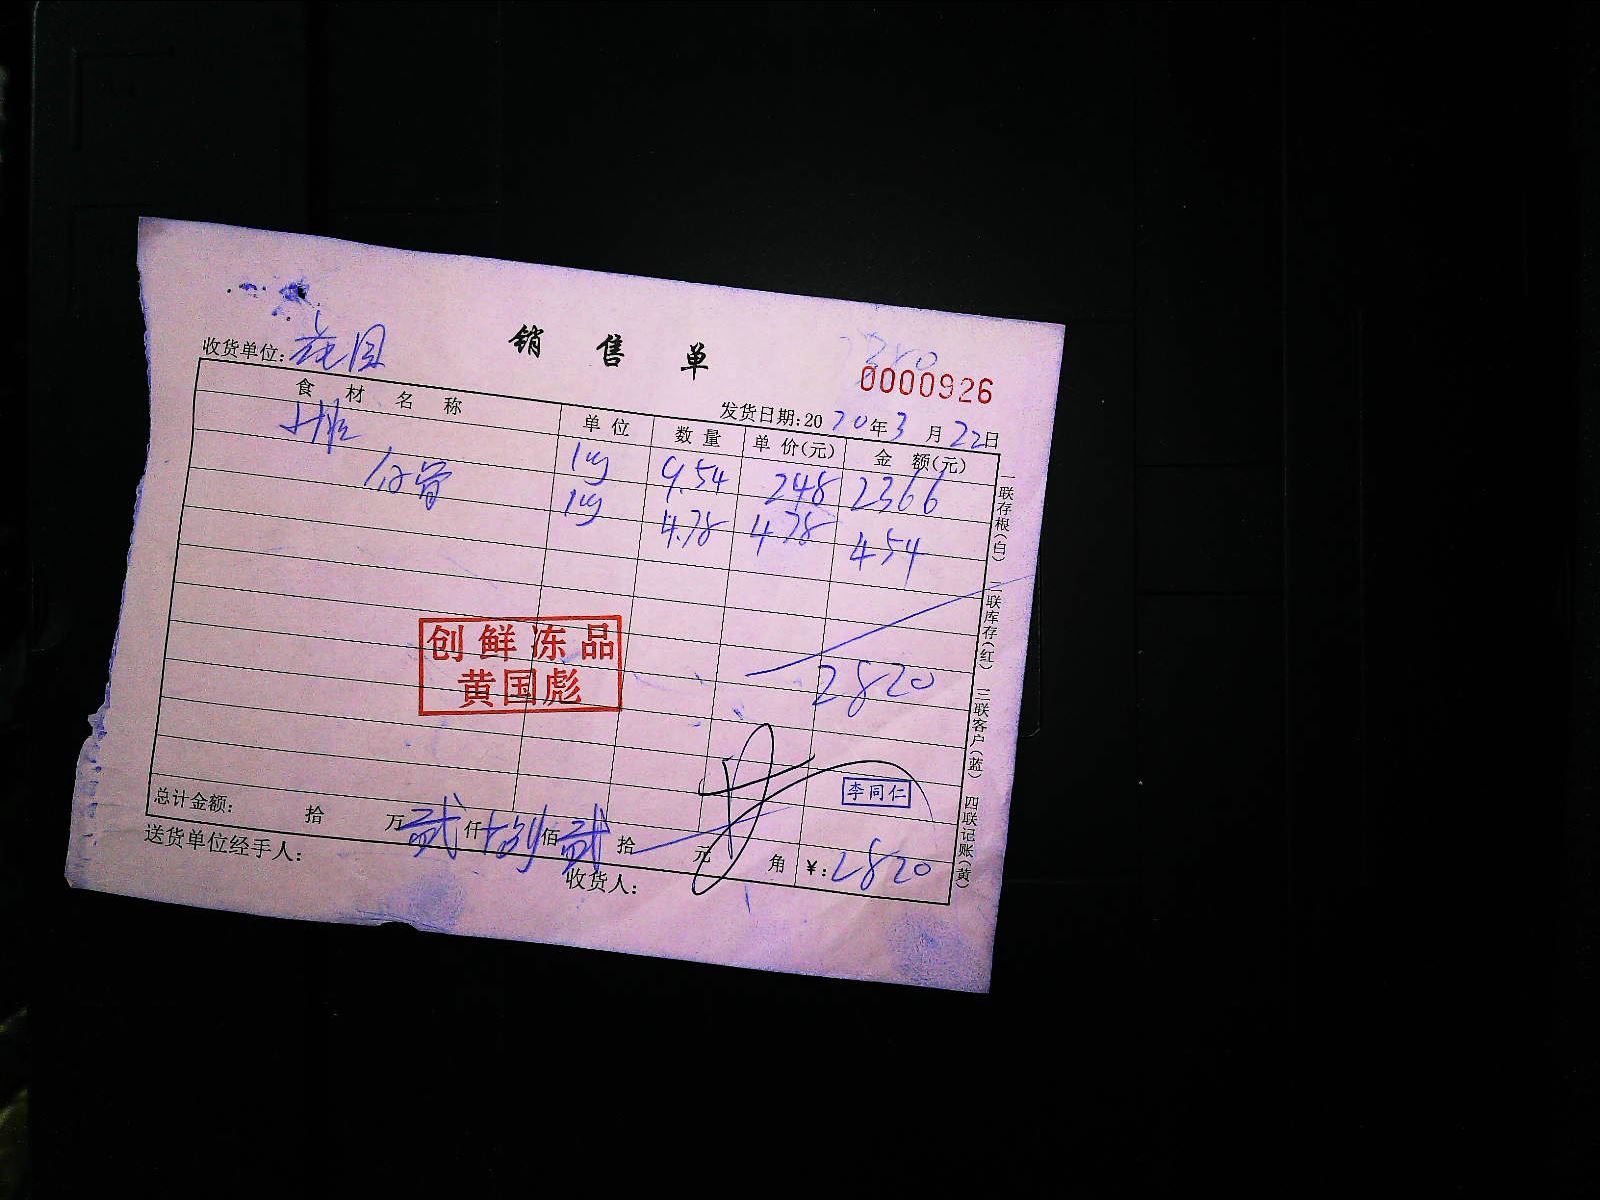 销售单
0000926
收货单位:
发货日期:2020年3月22日
食材名称 单位 数量 单价(元) 金额(元)
1kg 9.54 248 2366
骨 1kg 4.78 4.78 454
2820
创鲜冻品
黄国彪
李同仁
总计金额: 拾 万贰仟捌佰贰拾 元 角 ¥:2820
送货单位经手人: 收货人:
一联存根(白) 二联库存(红) 三联客户(蓝) 四联记账(黄)